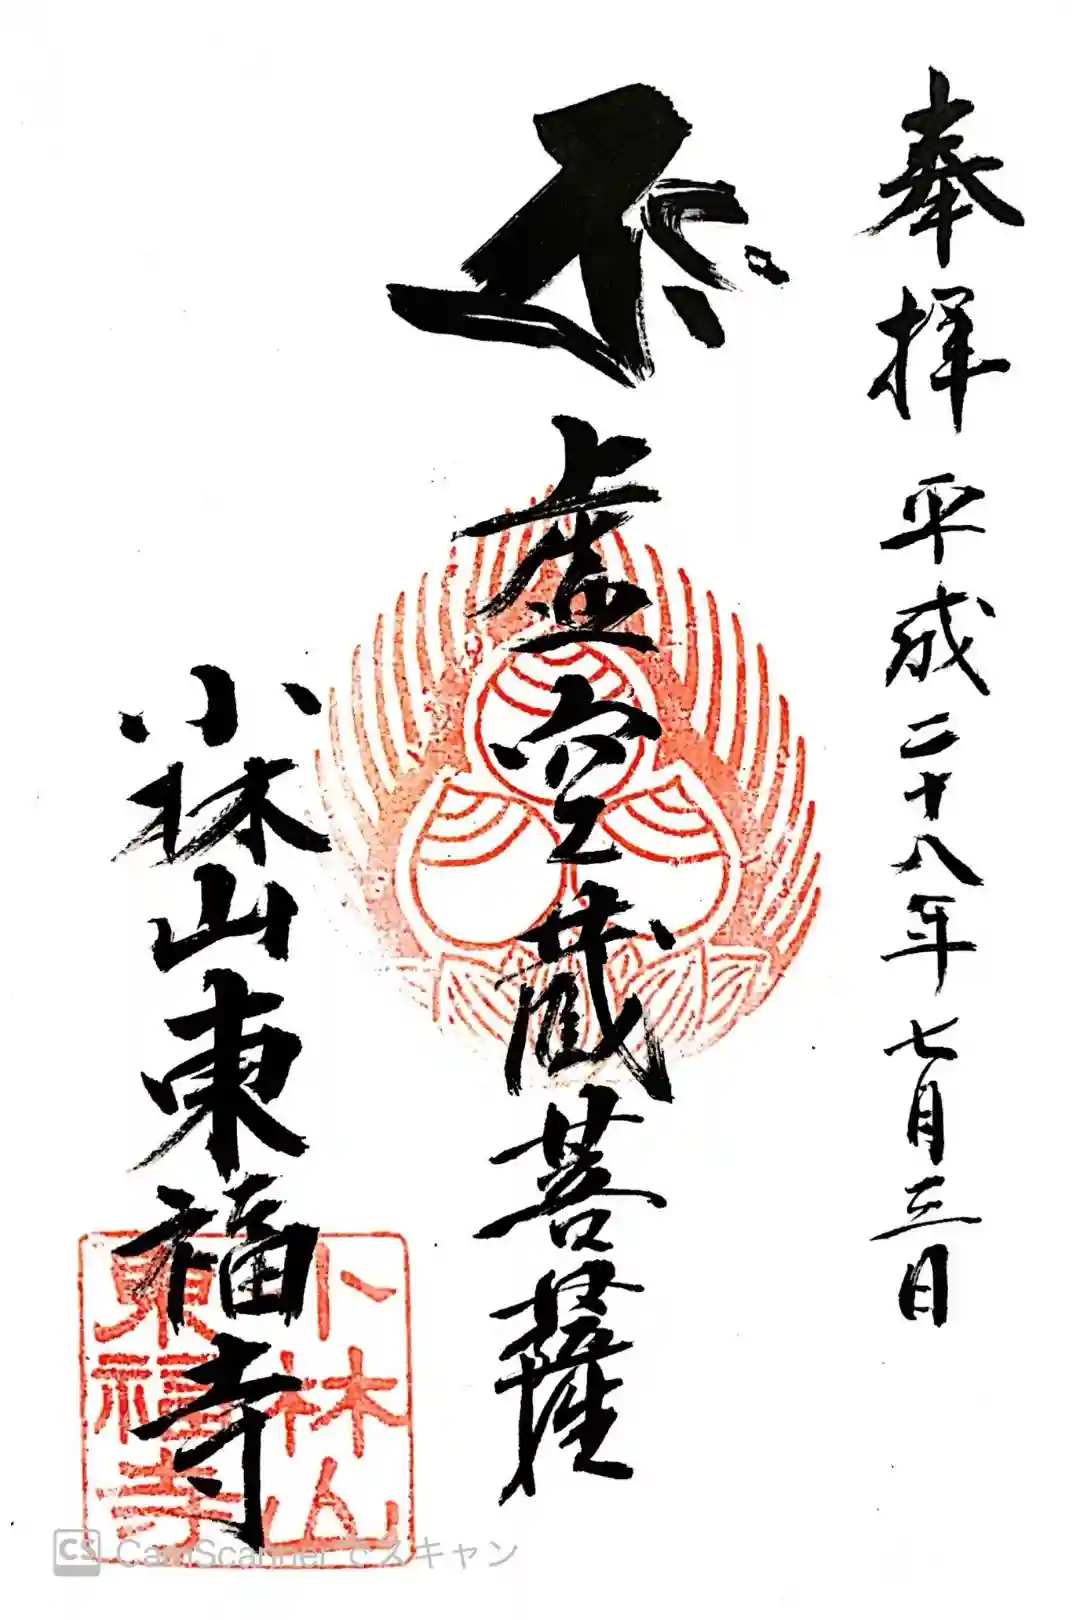 奉拝 平成二十八年 七月三日
虚空蔵菩薩
小林山東福寺
小林山
東福寺
CS CamScanner でスキャン